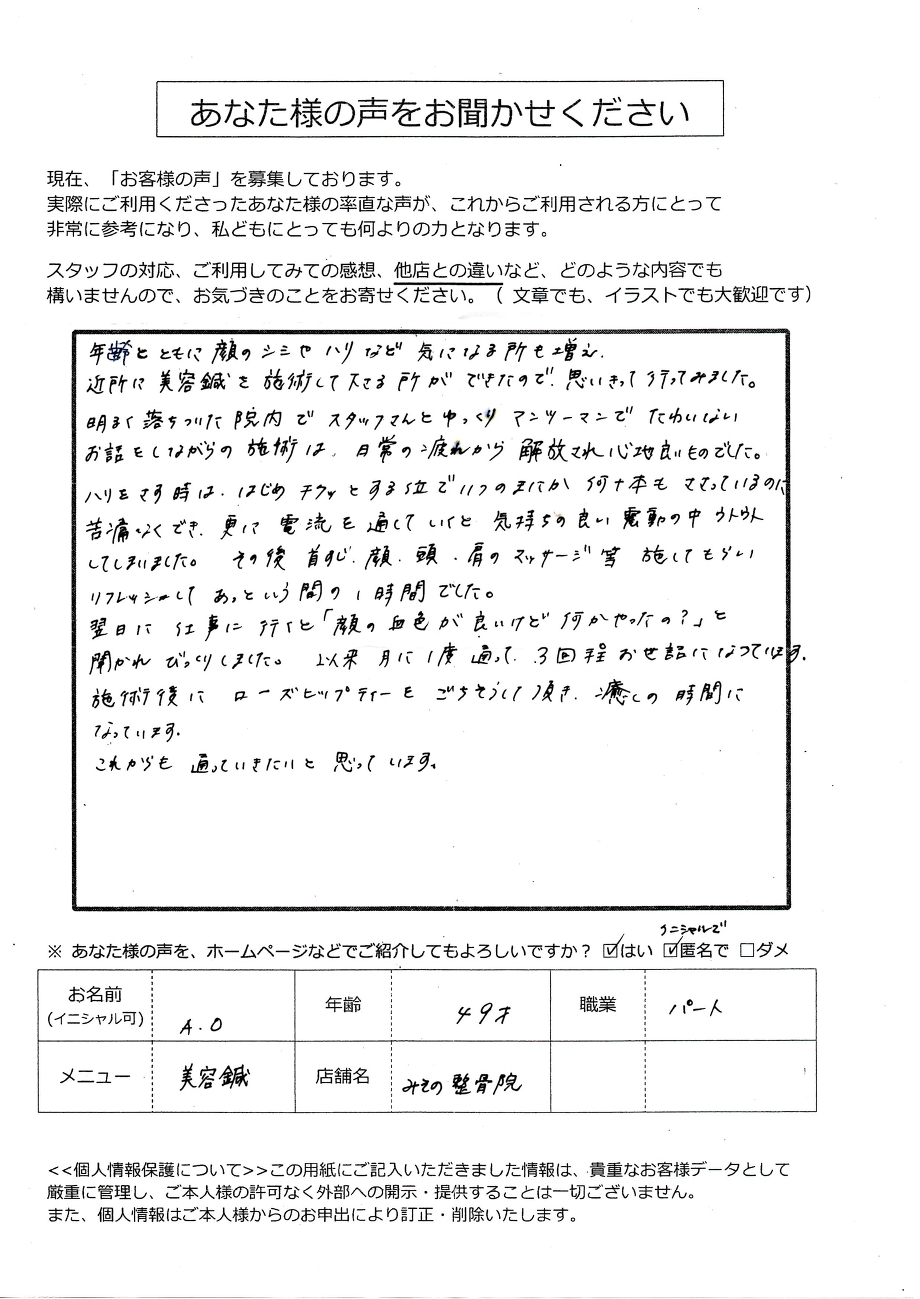 あなた様の声をお聞かせください
現在、「お客様の声」を募集しております。
実際にご利用くださったあなた様の率直な声が、これからご利用される方にとって
非常に参考になり、私どもにとっても何よりの力となります。
スタッフの対応、ご利用してみての感想、他店との違いなど、どのような内容でも
構いませんので、お気づきのことをお寄せください。（ 文章でも、イラストでも大歓迎です）
年齢とともに顔のシミやハリなど 気になる所も増え、
近所に美容鍼を施術して下さる所ができたので、思いきって行ってみました。
明るく落ちついた院内でスタッフさんとゆっくりマンツーマンでたわいない
お話をしながらの施術は、日常の疲れから解放され心地良いものでした。
ハリをさす時は、はじめチクッとする位でいつのまにか何十本もささっているのに
苦痛なくでき、更に電流を通していくと気持ちの良い震動の中ウトウト
してしまいました。 その後首すじ、顔、頭、肩のマッサージ等 施してもらい
リフレッシュしてあっという間の1時間でした。
翌日に仕事に行くと「顔の血色が良いけど何かやったの？」と
聞かれびっくりしました。 以来月に1度通って、3回程お世話になっています。
施術後にローズヒップティーをごちそうして頂き、癒しの時間に
なっています。
これからも通っていきたいと思っています。
イニシャルで
※ あなた様の声を、ホームページなどでご紹介してもよろしいですか？ ☑はい ☑匿名で □ダメ
お名前 (イニシャル可) A.O 年齢 49才 職業 パート
メニュー 美容鍼 店舗名 みその整骨院
<<個人情報保護について>>この用紙にご記入いただきました情報は、貴重なお客様データとして
厳重に管理し、ご本人様の許可なく外部への開示・提供することは一切ございません。
また、個人情報はご本人様からのお申出により訂正・削除いたします。